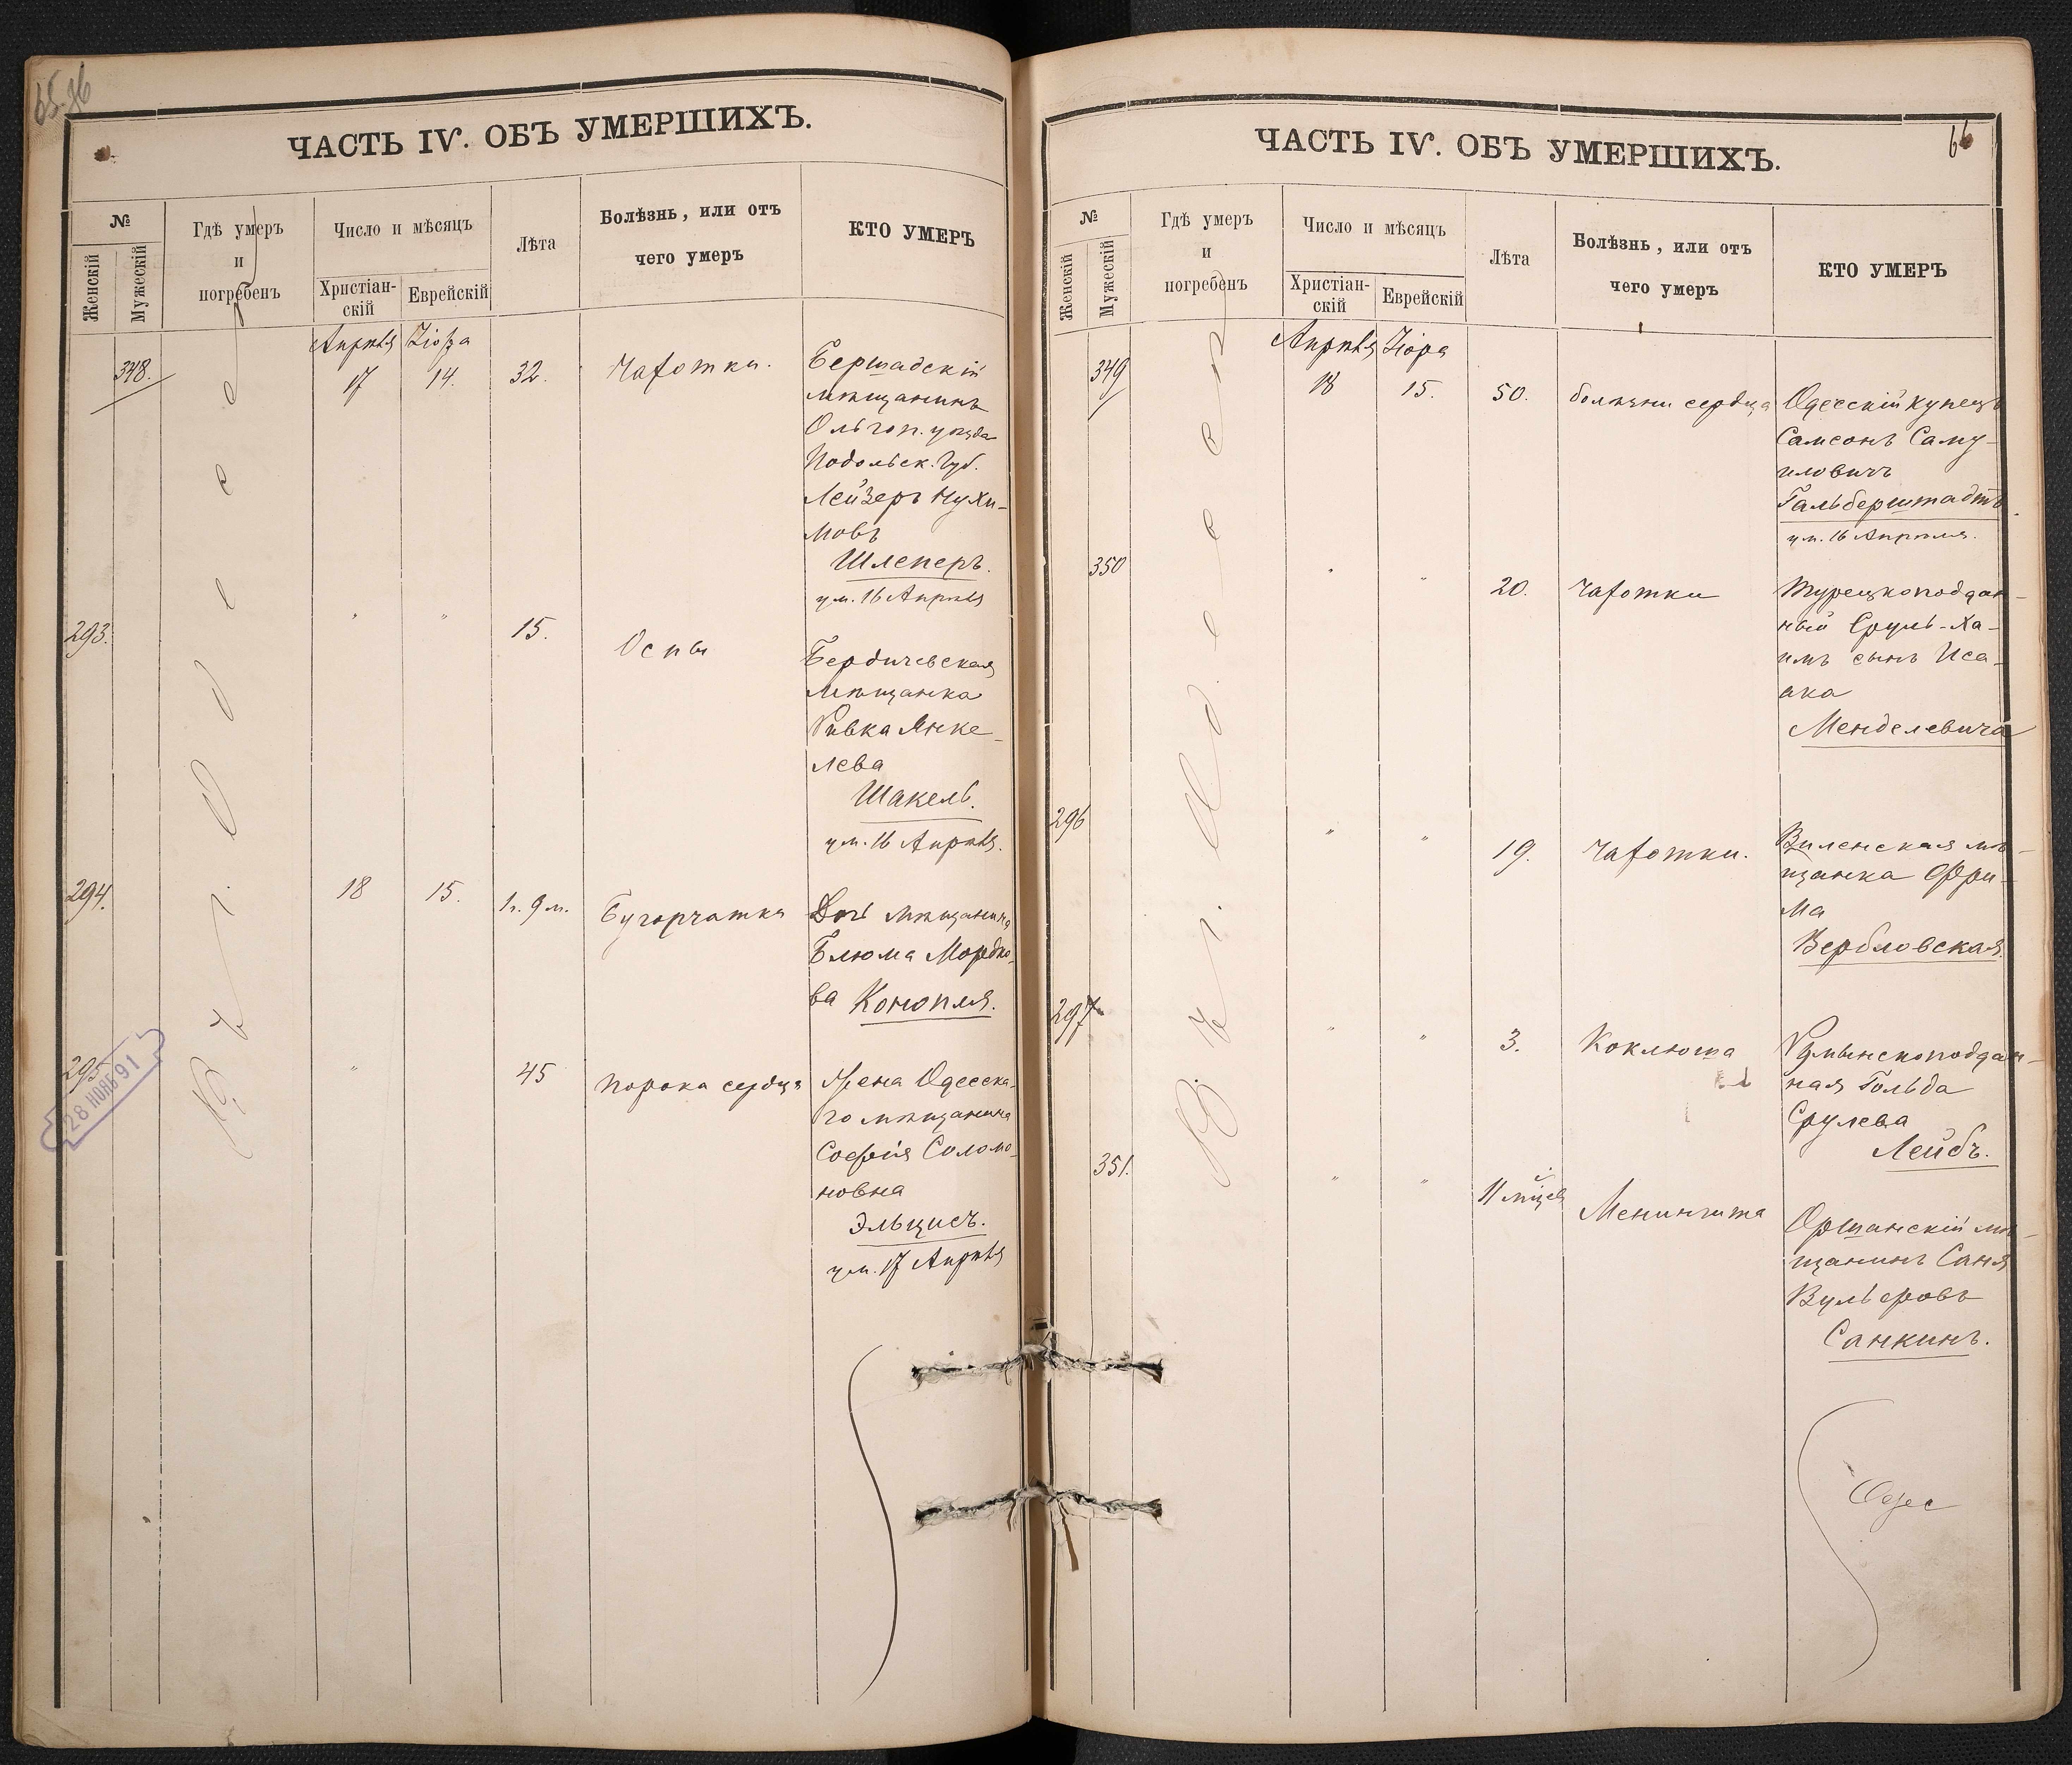 65-86
ЧАСТЬ IV. ОБЪ УМЕРШИХЪ.
№
Женскій
Мужескій
Гдѣ умеръ
и
погребенъ
Число и мѣсяцъ
Христіан-
скій
Еврейскій
Лѣта
Болѣзнь, или отъ
чего умеръ
КТО УМЕРЪ
Въ г. Одессѣ
Апрѣля Ніора
348. 17 14. 32. Чахотки. Бершадскій
мѣщанинъ
Ольгоп. уѣзда
Подольск. Губ.
Лейзеръ Нухи-
мовъ
Шлеперъ.
ум. 16 Апрѣля
293. " " 15. Оспы Бердичевская
мѣщанка
Ривка Янке-
лева
Шакель.
ум. 16 Апрѣля.
294. 18 15. 1 г. 9 м. Бугорчатки Дочь мѣщанина
Блюма Мордко-
ва Конопля.
295 " 45 порока сердца Жена Одесска-
го мѣщанина
Софія Соломо-
новна
Эльцисъ.
ум. 17 Апрѣля
28 НОЯБ 91
66
ЧАСТЬ IV. ОБЪ УМЕРШИХЪ.
№
Женскій
Мужескій
Гдѣ умеръ
и
погребенъ
Число и мѣсяцъ
Христіан-
скій
Еврейскій
Лѣта
Болѣзнь, или отъ
чего умеръ
КТО УМЕРЪ
Въ г. Одессѣ
Апрѣля Ніора
349 18 15. 50. болѣзни сердца Одесскій купецъ
Самсонъ Саму-
иловичъ
Гальберштадтъ.
ум. 16 Апрѣля.
350 " " 20. Чахотки Турецкоподдан-
ный Сруль-Ха-
имъ сынъ Иса-
ака
Менделевича
296 " " 19. Чахотки. Виленская мѣ-
щанка Фри-
ма
Вербловская.
297 " " 3. Коклюша Румынскоподдан-
ная Гольда
Срулева
Лейбъ.
351. " " 11 мѣцев Менингита Оршанскій мѣ-
щанинъ Саня
Вульфовъ
Санкинъ.